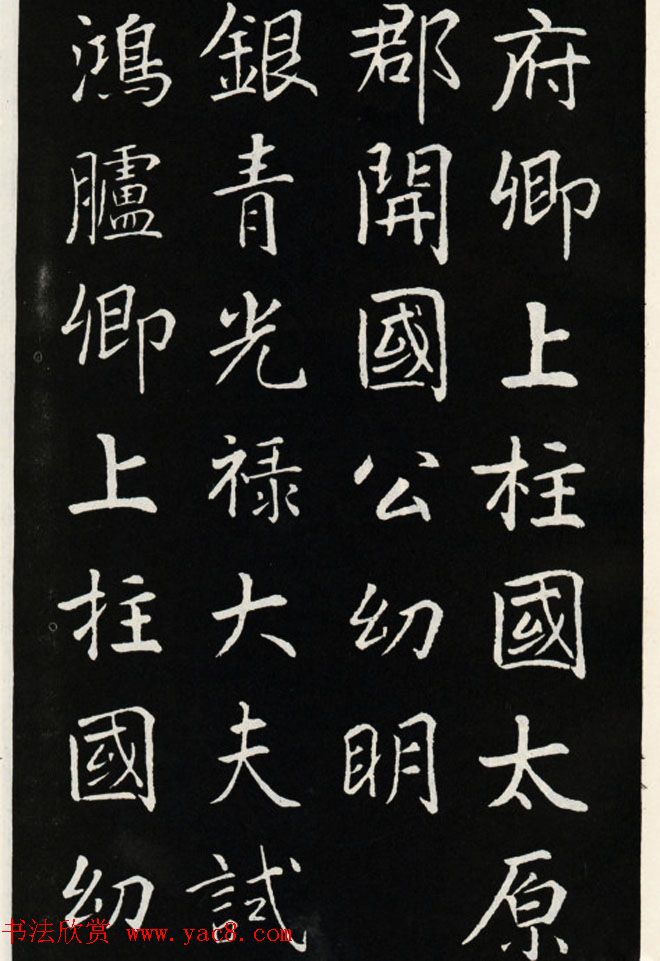 府卿上柱國太原
郡開國公幼明
銀青光禄大夫試
鴻臚卿上柱國幼
书法欣赏 www.yac8.com